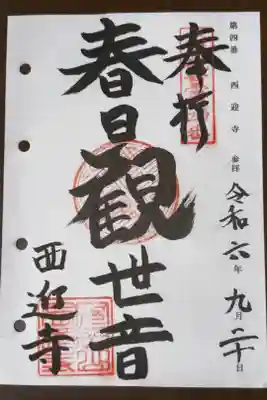 奉拝
第四番 西迎寺 参拝 令和六年九月二十日
春日観世音
西迎寺